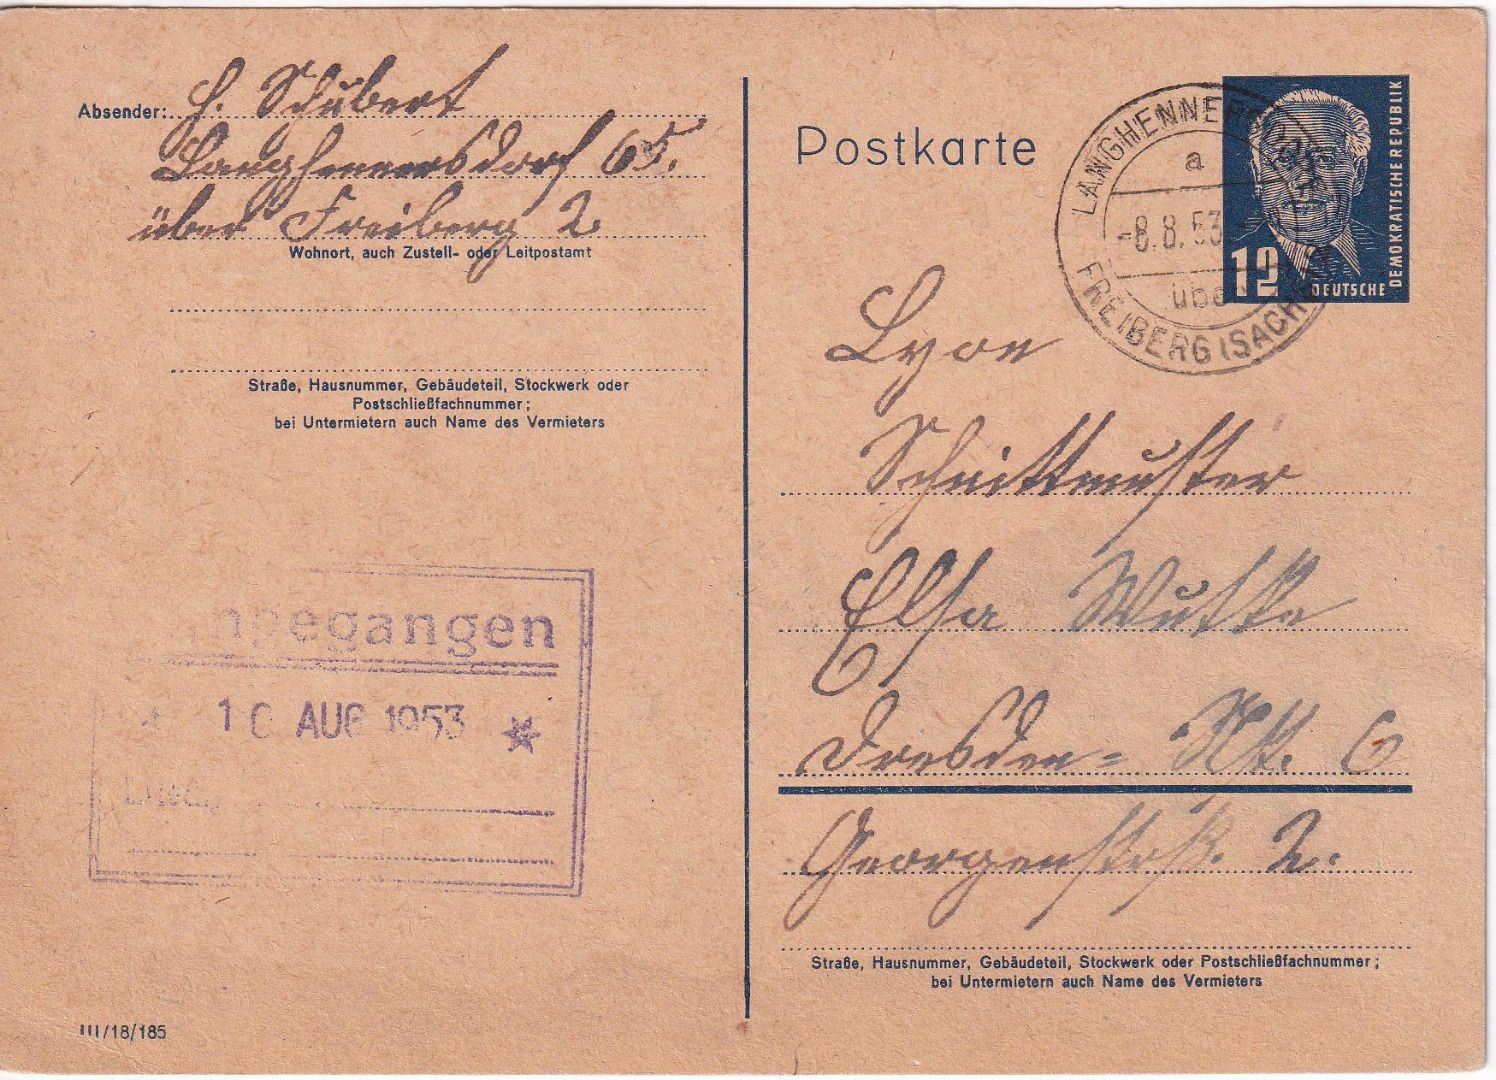 Absender: H. Schubert
Langhennersdorf 65.
über Freiberg 2
Wohnort, auch Zustell- oder Leitpostamt
Straße, Hausnummer, Gebäudeteil, Stockwerk oder
Postschließfachnummer;
bei Untermietern auch Name des Vermieters
ngegangen
10 AUG 1953 *
III/18/185
Postkarte
LANGHENNERSDORF
a
-8.8.53
über
FREIBERG (SACHSEN)
12
DEUTSCHE
DEMOKRATISCHE REPUBLIK
Lyon
Schnittmuster
Elsa Wutke
Dresden= Nst. 6
Georgenstrß. 2.
Straße, Hausnummer, Gebäudeteil, Stockwerk oder Postschließfachnummer;
bei Untermietern auch Name des Vermieters